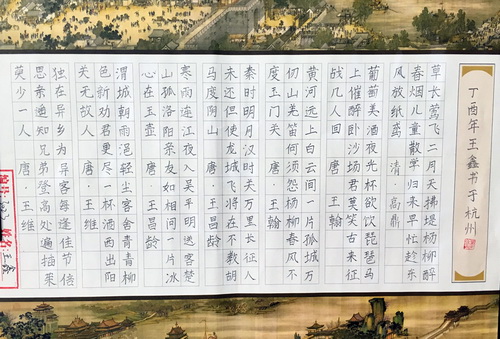 丁酉年王鑫书于杭州
草长莺飞二月天拂堤杨柳醉
春烟儿童散学归来早忙趁东
风放纸鸢 清·高鼎
葡萄美酒夜光杯欲饮琵琶马
上催醉卧沙场君莫笑古来征
战几人回 唐·王翰
黄河远上白云间一片孤城万
仞山羌笛何须怨杨柳春风不
度玉门关 唐·王翰
秦时明月汉时关万里长征人
未还但使龙城飞将在不教胡
马度阴山 唐·王昌龄
寒雨连江夜入吴平明送客楚
山孤洛阳亲友如相问一片冰
心在玉壶 唐·王昌龄
渭城朝雨浥轻尘客舍青青柳
色新劝君更尽一杯酒西出阳
关无故人 唐·王维
独在异乡为异客每逢佳节倍
思亲遥知兄弟登高处遍插茱
萸少一人 唐·王维